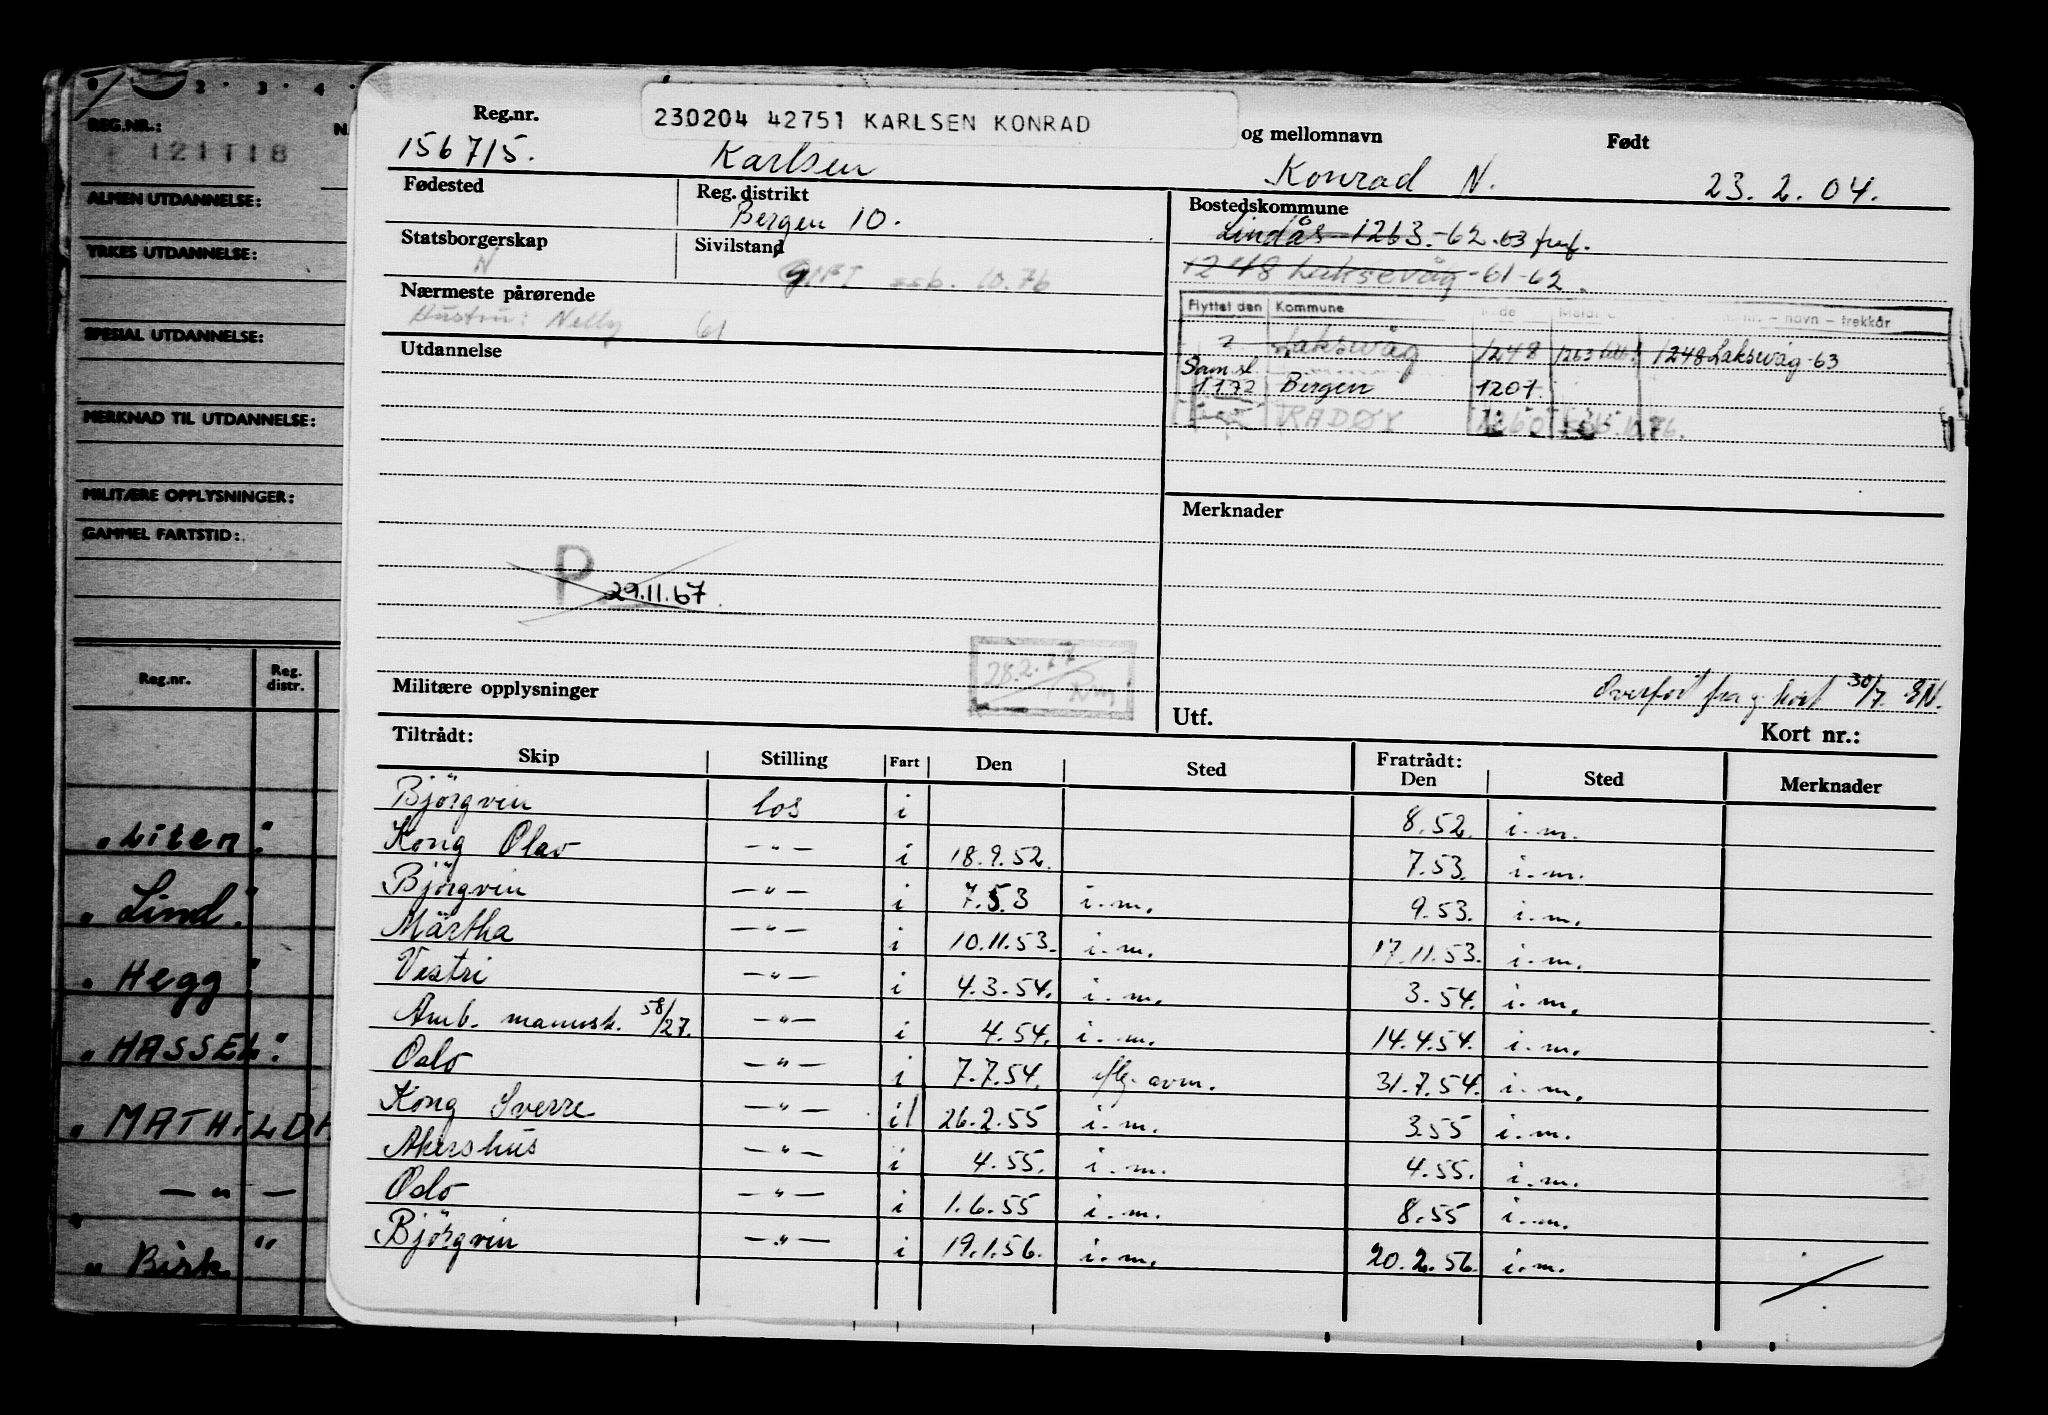 2 · 3 · 4 ·
REG.NR.:
121118
ALMEN UTDANNELSE:
YRKES UTDANNELSE:
SPESIAL UTDANNELSE:
MERKNAD TIL UTDANNELSE:
MILITÆRE OPPLYSNINGER:
GAMMEL FARTSTID:
Reg.nr. Reg. distr.
"Liten"
"Lind"
"Hegg"
"HASSEL"
"MATHILDH
— " —
"Birk"
230204 42751 KARLSEN KONRAD
Reg.nr. og mellomnavn Født
156715. Karlsen Konrad N. 23.2.04.
Fødested Reg. distrikt Bostedskommune
Bergen 10. Lindås 1263.-62.-63
Statsborgerskap Sivilstand
N g GIFT ssb. 10.76 1248 Laksevåg -61-62.
Nærmeste pårørende
Hustru: Nelly 61
Flyttet den Kommune – navn – trekkår
Laksevåg 1248 1263 1248 Laksevåg -63
1.1.72 Bergen 1201.
RADØY 1260 ssb. 10.76.
Utdannelse
Merknader
P 29.11.67
28.2.77
Militære opplysninger
Overført fra g. kort 30/7. EN.
Utf. Kort nr.:
Tiltrådt: Fratrådt:
Skip Stilling Fart Den Sted Den Sted Merknader
Björgvin los i 8.52. i.m.
Kong Olav —"— i 18.9.52. 7.53. i.m.
Björgvin —"— i 7.53 i.m. 9.53. i.m.
Märtha —"— i 10.11.53. i.m. 17.11.53. i.m.
Vestri —"— i 4.3.54. i.m. 3.54. i.m.
Amb. mannsk. 58/27. —"— i 4.54. i.m. 14.4.54. i.m.
Oslo —"— i 7.7.54. iflg. avm. 31.7.54. i.m.
Kong Sverre —"— i/ 26.2.55 i.m. 3.55 i.m.
Akershus —"— i 4.55. i.m. 4.55. i.m.
Oslo —"— i 1.6.55 i.m. 8.55 i.m.
Björgvin —"— i 19.1.56. i.m. 20.2.56. i.m.